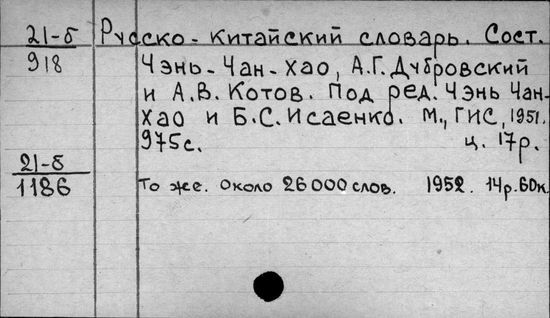 21-б Русско-китайский словарь. Сост.
918 Чэнь-Чан-хао, А.Г. Дубровский
и А.В. Котов. Под ред. Чэнь Чан-
хао и Б.С. Исаенко. М., ГИС, 1951.
975с. ц. 17р.
21-б
1186 То же. Около 26000 слов. 1952. 14р.60к.